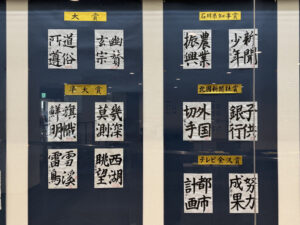 大賞
玄宗
道俗
準大賞
幾深
莫測
旗幟
鮮明
西湖
眺望
雪渓
雷鳥
石川県知事賞
新聞
少年
農業
振興
北國新聞社賞
子供
銀行
外国
切手
テレビ金沢賞
努力
成果
都市
計画